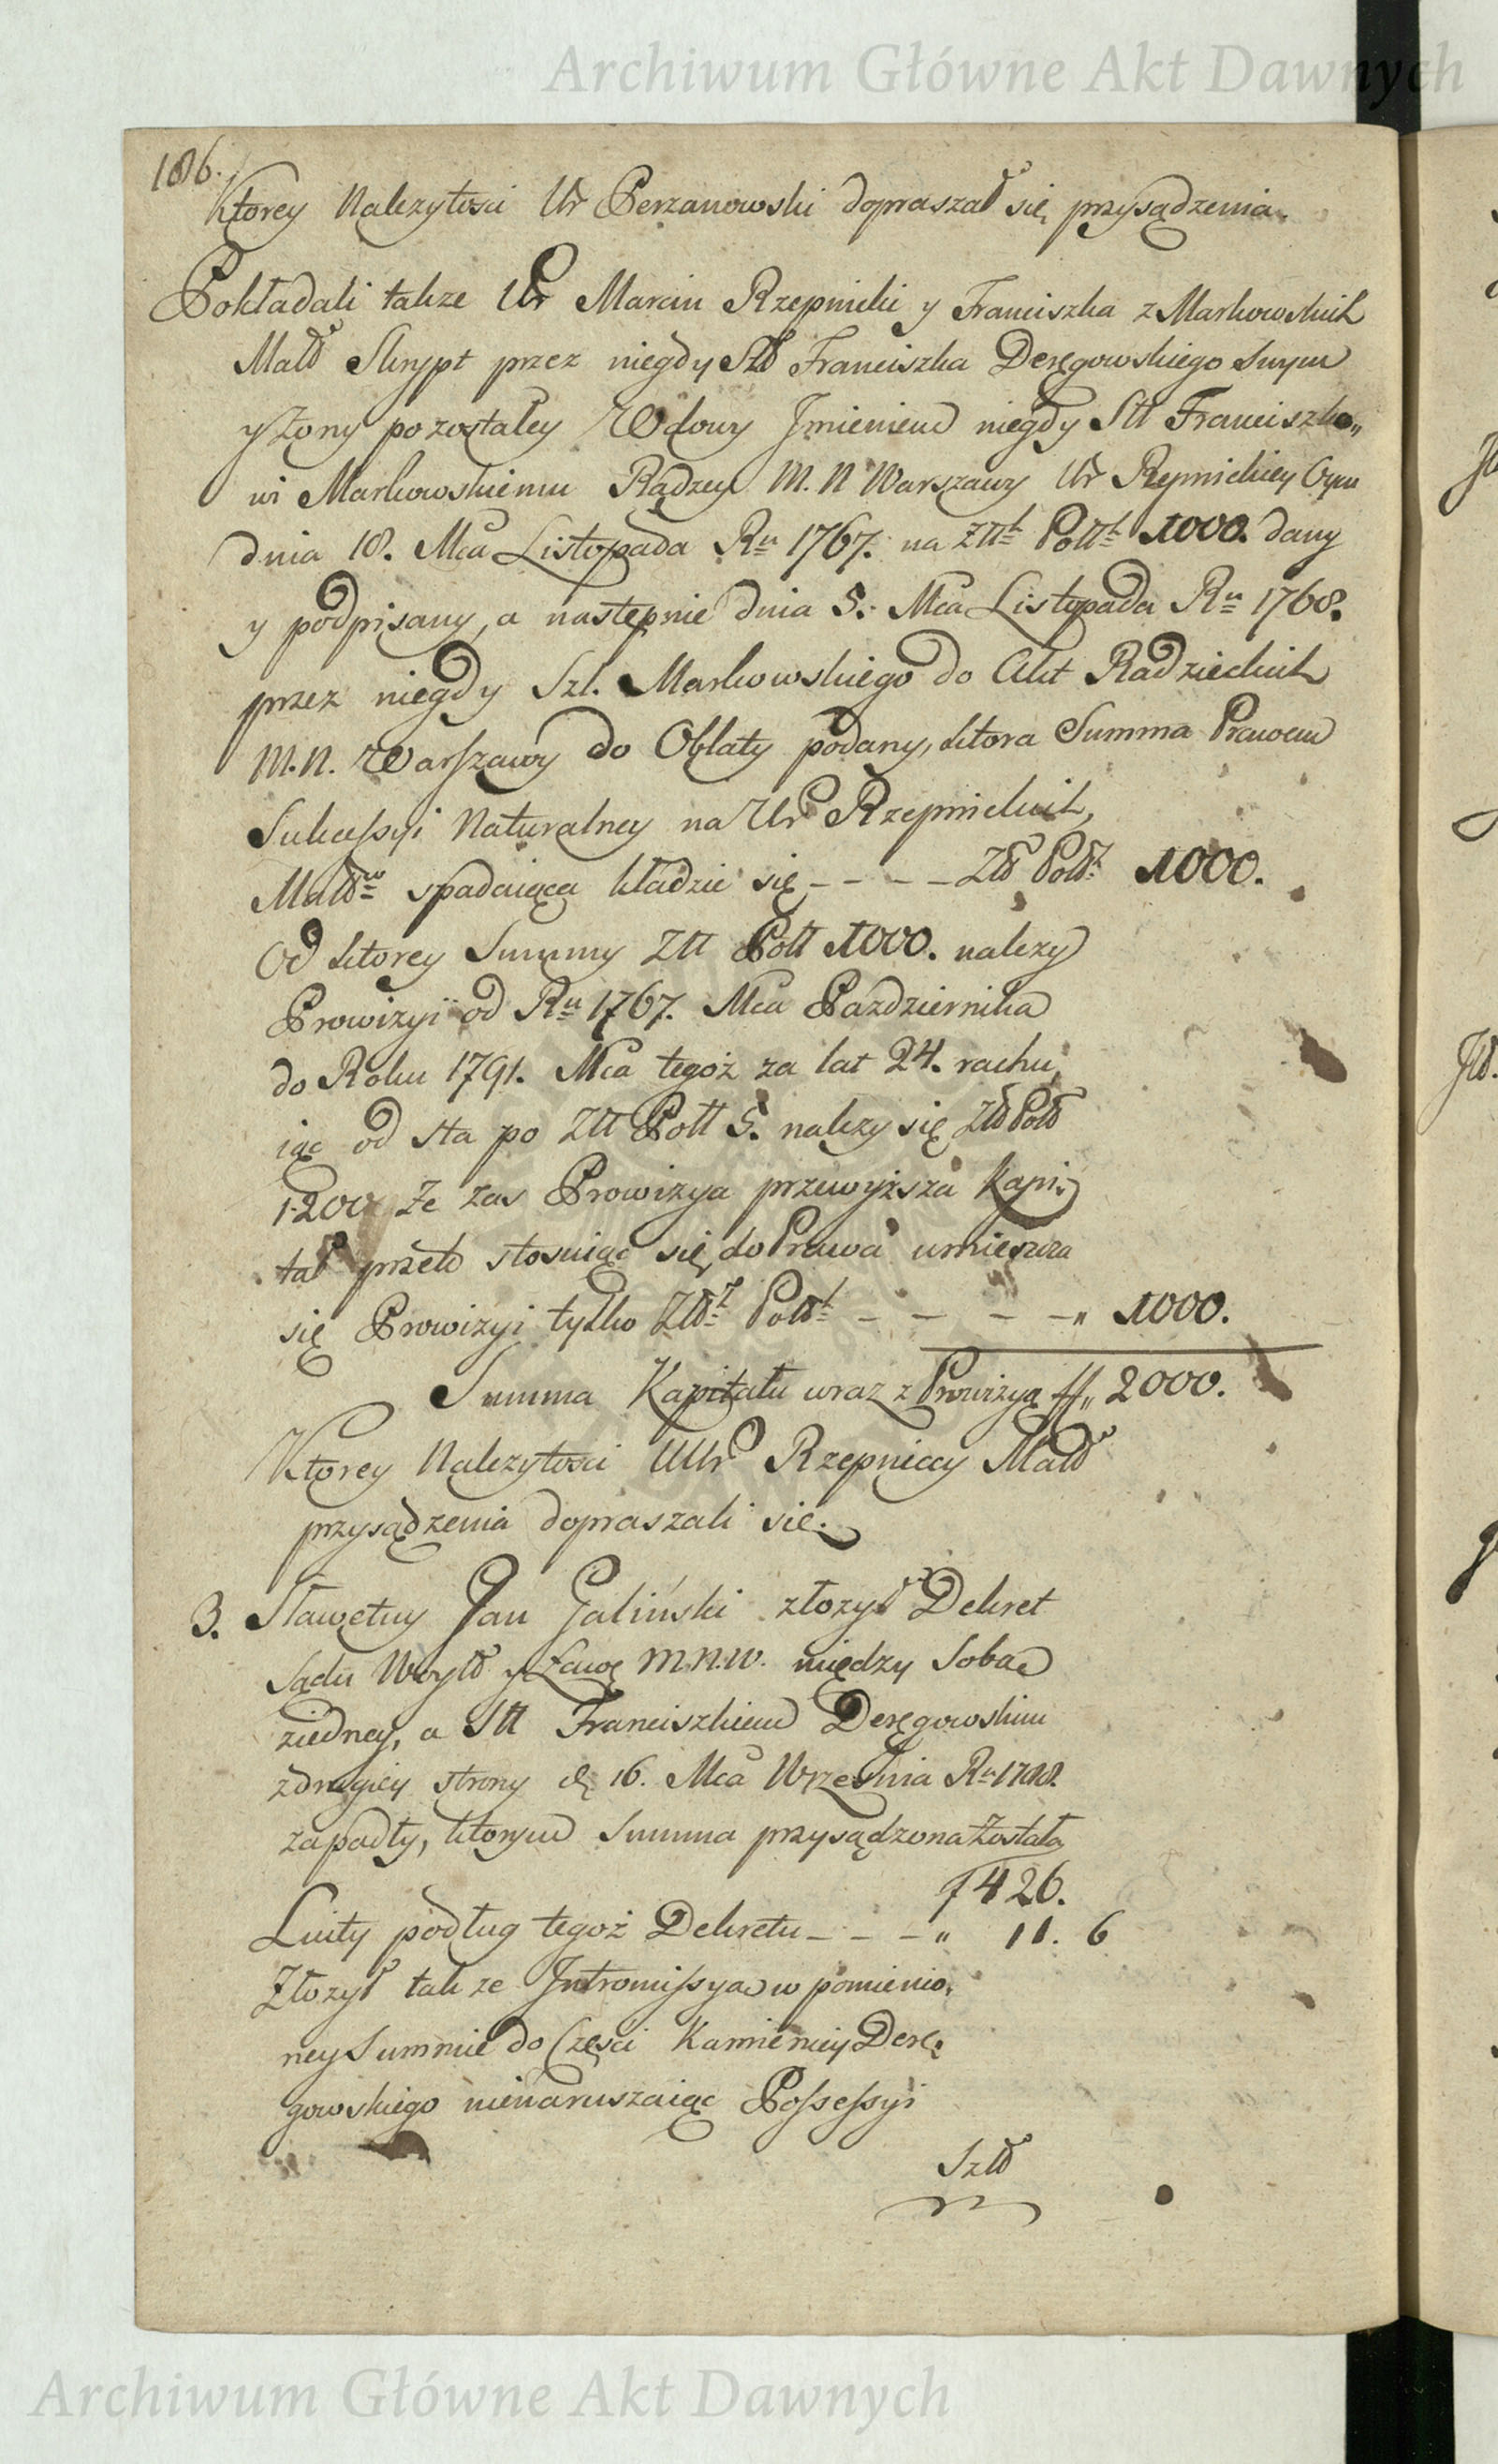 Archiwum Główne Akt Dawnych
186.
Ktorey Nalezytosci Ur Perzanowski dopraszał się przysądzenia.
Pokładali takze Ur Marcin Rzepnicki y Franciszka z Markowskich
Małł Skrypt przez niegdy Szł Franciszka Deręgowskiego Swym
y Zony pozostałey Wdowy Jmieniem niegdy Stt Franciszko„
wi Markowskiemu Radzcy M. N Warszawy Ur Rzepnickiey Oycu
dnia 18. Mca Listopada Ru 1767. na Złłch Polłłch 1000. dany
y podpisany, a następnie dnia 5. Mca Listopada Ru 1768.
przez niegdy Szl. Markowskiego do Akt Radzieckich
M. N. Warszawy do Oblaty podany, ktora Summa Prawem
Sukcessyi Naturalney na Ur Rzepnickich,
Małłw spadaiąca kładzie się - - - - Złł Polłch 1000.
Od ktorey Summy Ztt Pott 1000. nalezy
Prowizyi od Ru 1767. Mca Pazdziernika
do Roku 1791. Mca tegoż za lat 24. rachu,
iąc od sta po Ztt Pott 5. nalezy się Złł Połł
1200 Ze zas Prowizya przewyższa Kapi,
tał przeto stosuiąc się do Prawa umieszcza
się Prowizyi tylko Złłch Połłch - - - -„ 1000.
Summa Kapitału wraz z Prowizyą ff„ 2000.
Ktorey Nalezytosci UUr Rzepniccy Małł
przysądzenia dopraszali się.
3. Sławetny Jan Galiński złozył Dekret
Sądu Woytł y Ławę M. N. W. między Sobą
z iedney, a Stt Franciszkiem Deręgowskim
z drugiey strony d. 16. Mca Września Ru 1788.
zapadły, ktorym Summa przysądzona Została
f 426.
Luity podług tegoż Dekretu - - - „ 11. 6
Złozył takze Intromissyą w pomienio,
ney Summie do Części Kamienicy Derę,
gowskiego nienaruszaiąc Possessyi
Szłł
Archiwum Główne Akt Dawnych